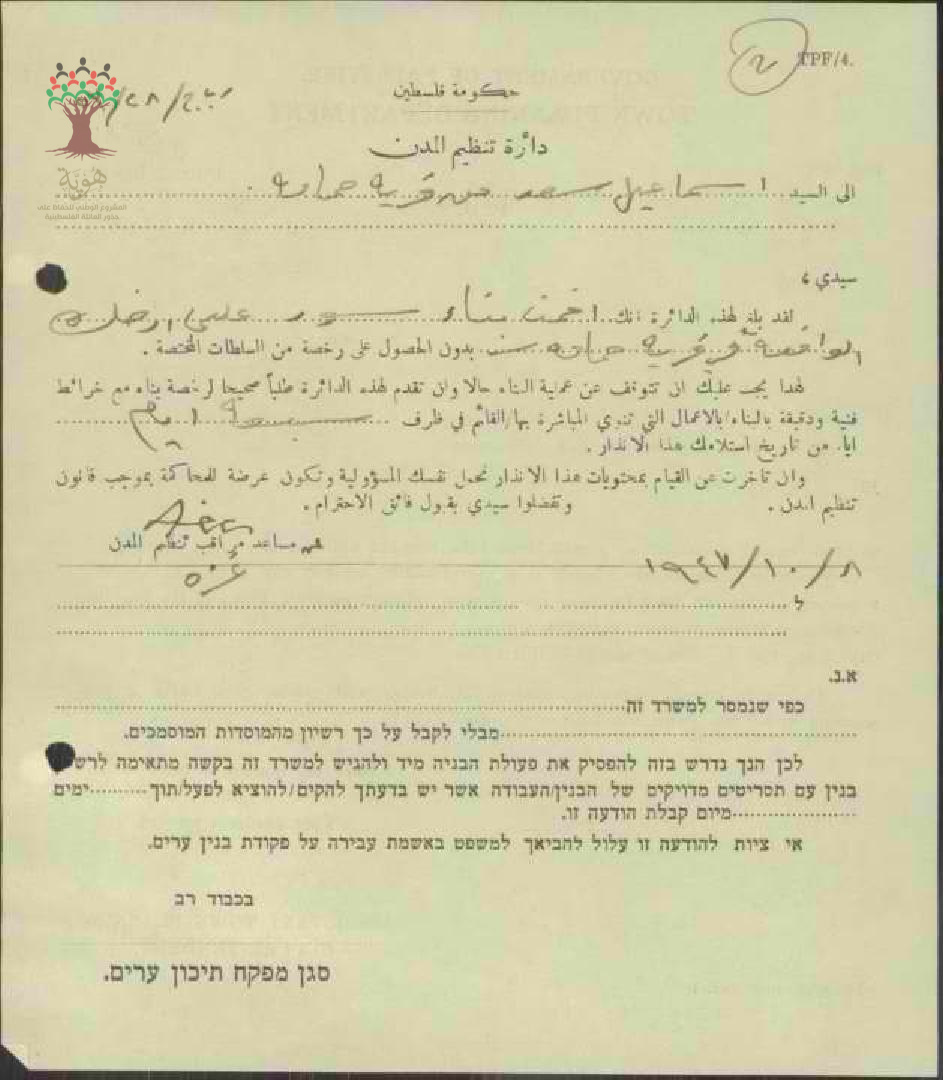 TPF/4.
حكومة فلسطين
دائرة تنظيم المدن
هوية
المشروع الوطني للحفاظ على
جذور العائلة الفلسطينية
الى السيد اسماعيل سعد من قرية حمامه
سيدي ،
لقد بلغ لهذه الدائرة انك اقمت بناء سور على ارضك
الواقعة في قرية حمامه بدون الحصول على رخصة من السلطات المختصة .
لهذا يجب عليك ان تتوقف عن عملية البناء حالا وان تقدم لهذه الدائرة طلباً صحيحا لرخصة بناء مع خرائط
فنية ودقيقة بالبناء/بالاعمال التي تنوي المباشرة بها/القائم في ظرف سبعة ايام
ايام من تاريخ استلامك هذا الانذار .
وان تأخرت عن القيام بمحتويات هذا الانذار تحمل نفسك المسؤولية وتكون عرضة للمحاكمة بموجب قانون
تنظيم المدن . وتفضلوا سيدي بقبول فائق الاحترام .
مساعد مراقب تنظيم المدن
غزه
١٩٤٧/١٠/٨
ל
א.נ.
כפי שנמסר למשרד זה
מבלי לקבל על כך רשיון מהמוסדות המוסמכים.
לכן הנך נדרש בזה להפסיק את פעולת הבניה מיד ולהגיש למשרד זה בקשה מתאימה לרש
בנין עם תסריטים מדויקים של הבנין/העבודה אשר יש בדעתך להקים/להוציא לפעל/תוך ימים
מיום קבלת הודעה זו.
אי ציות להודעה זו עלול להביאך למשפט באשמת עבירה על פקודת בנין ערים.
בכבוד רב
סגן מפקח תיכון ערים.